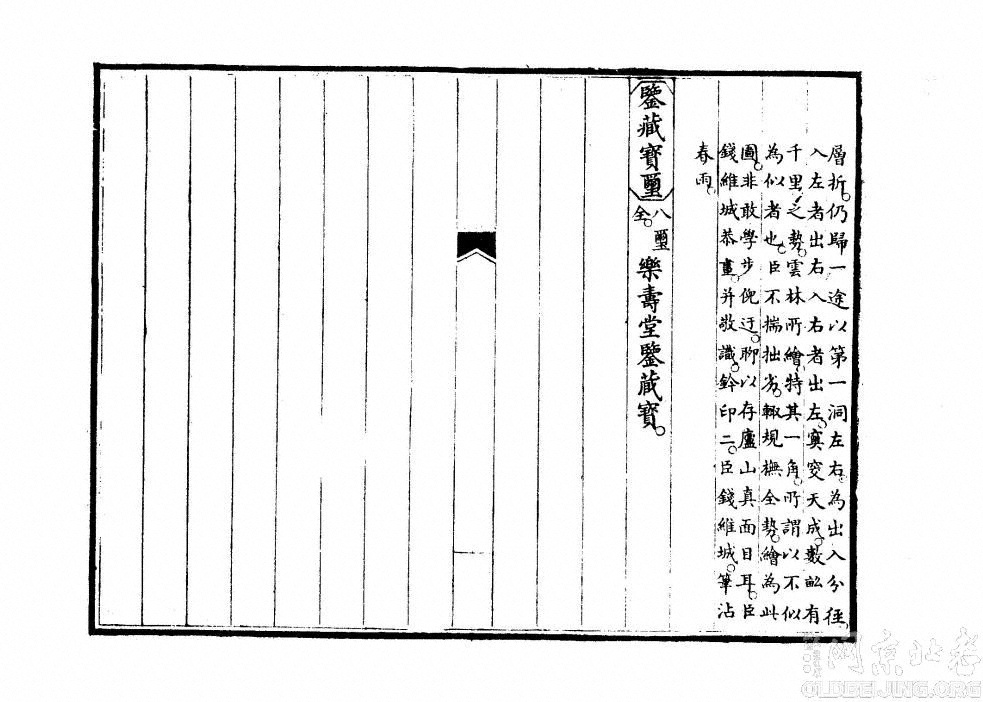 層折仍歸一途以第一洞左右為出入分徑
入左者出右入右者出左窔突天成數畝有
千里之勢雲林所繪特其一角所謂以不似
為似者也臣不揣拙劣輙規橅全勢繪為此
圖非敢學步倪迂聊以存廬山真面目耳臣
錢維城恭畫并敬識鈐印二臣錢維城筆沾
春雨
鑒藏寶璽
八璽
全
樂壽堂鑒藏寶
老北京网
OLDBEIJING.ORG